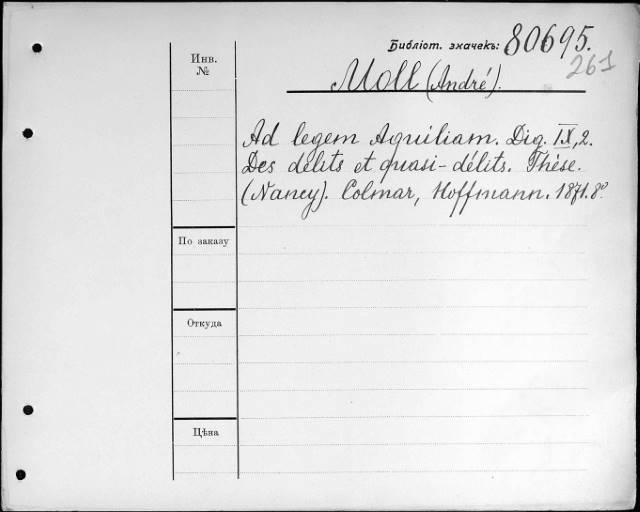 Библіот. значекъ: 80695.
261
Инв. №
Moll (André).
Ad legem Aquiliam. Dig. IX, 2.
Des délits et quasi-délits. Thèse.
(Nancy). Colmar, Hoffmann. 1871. 8º
По заказу
Откуда
Цѣна